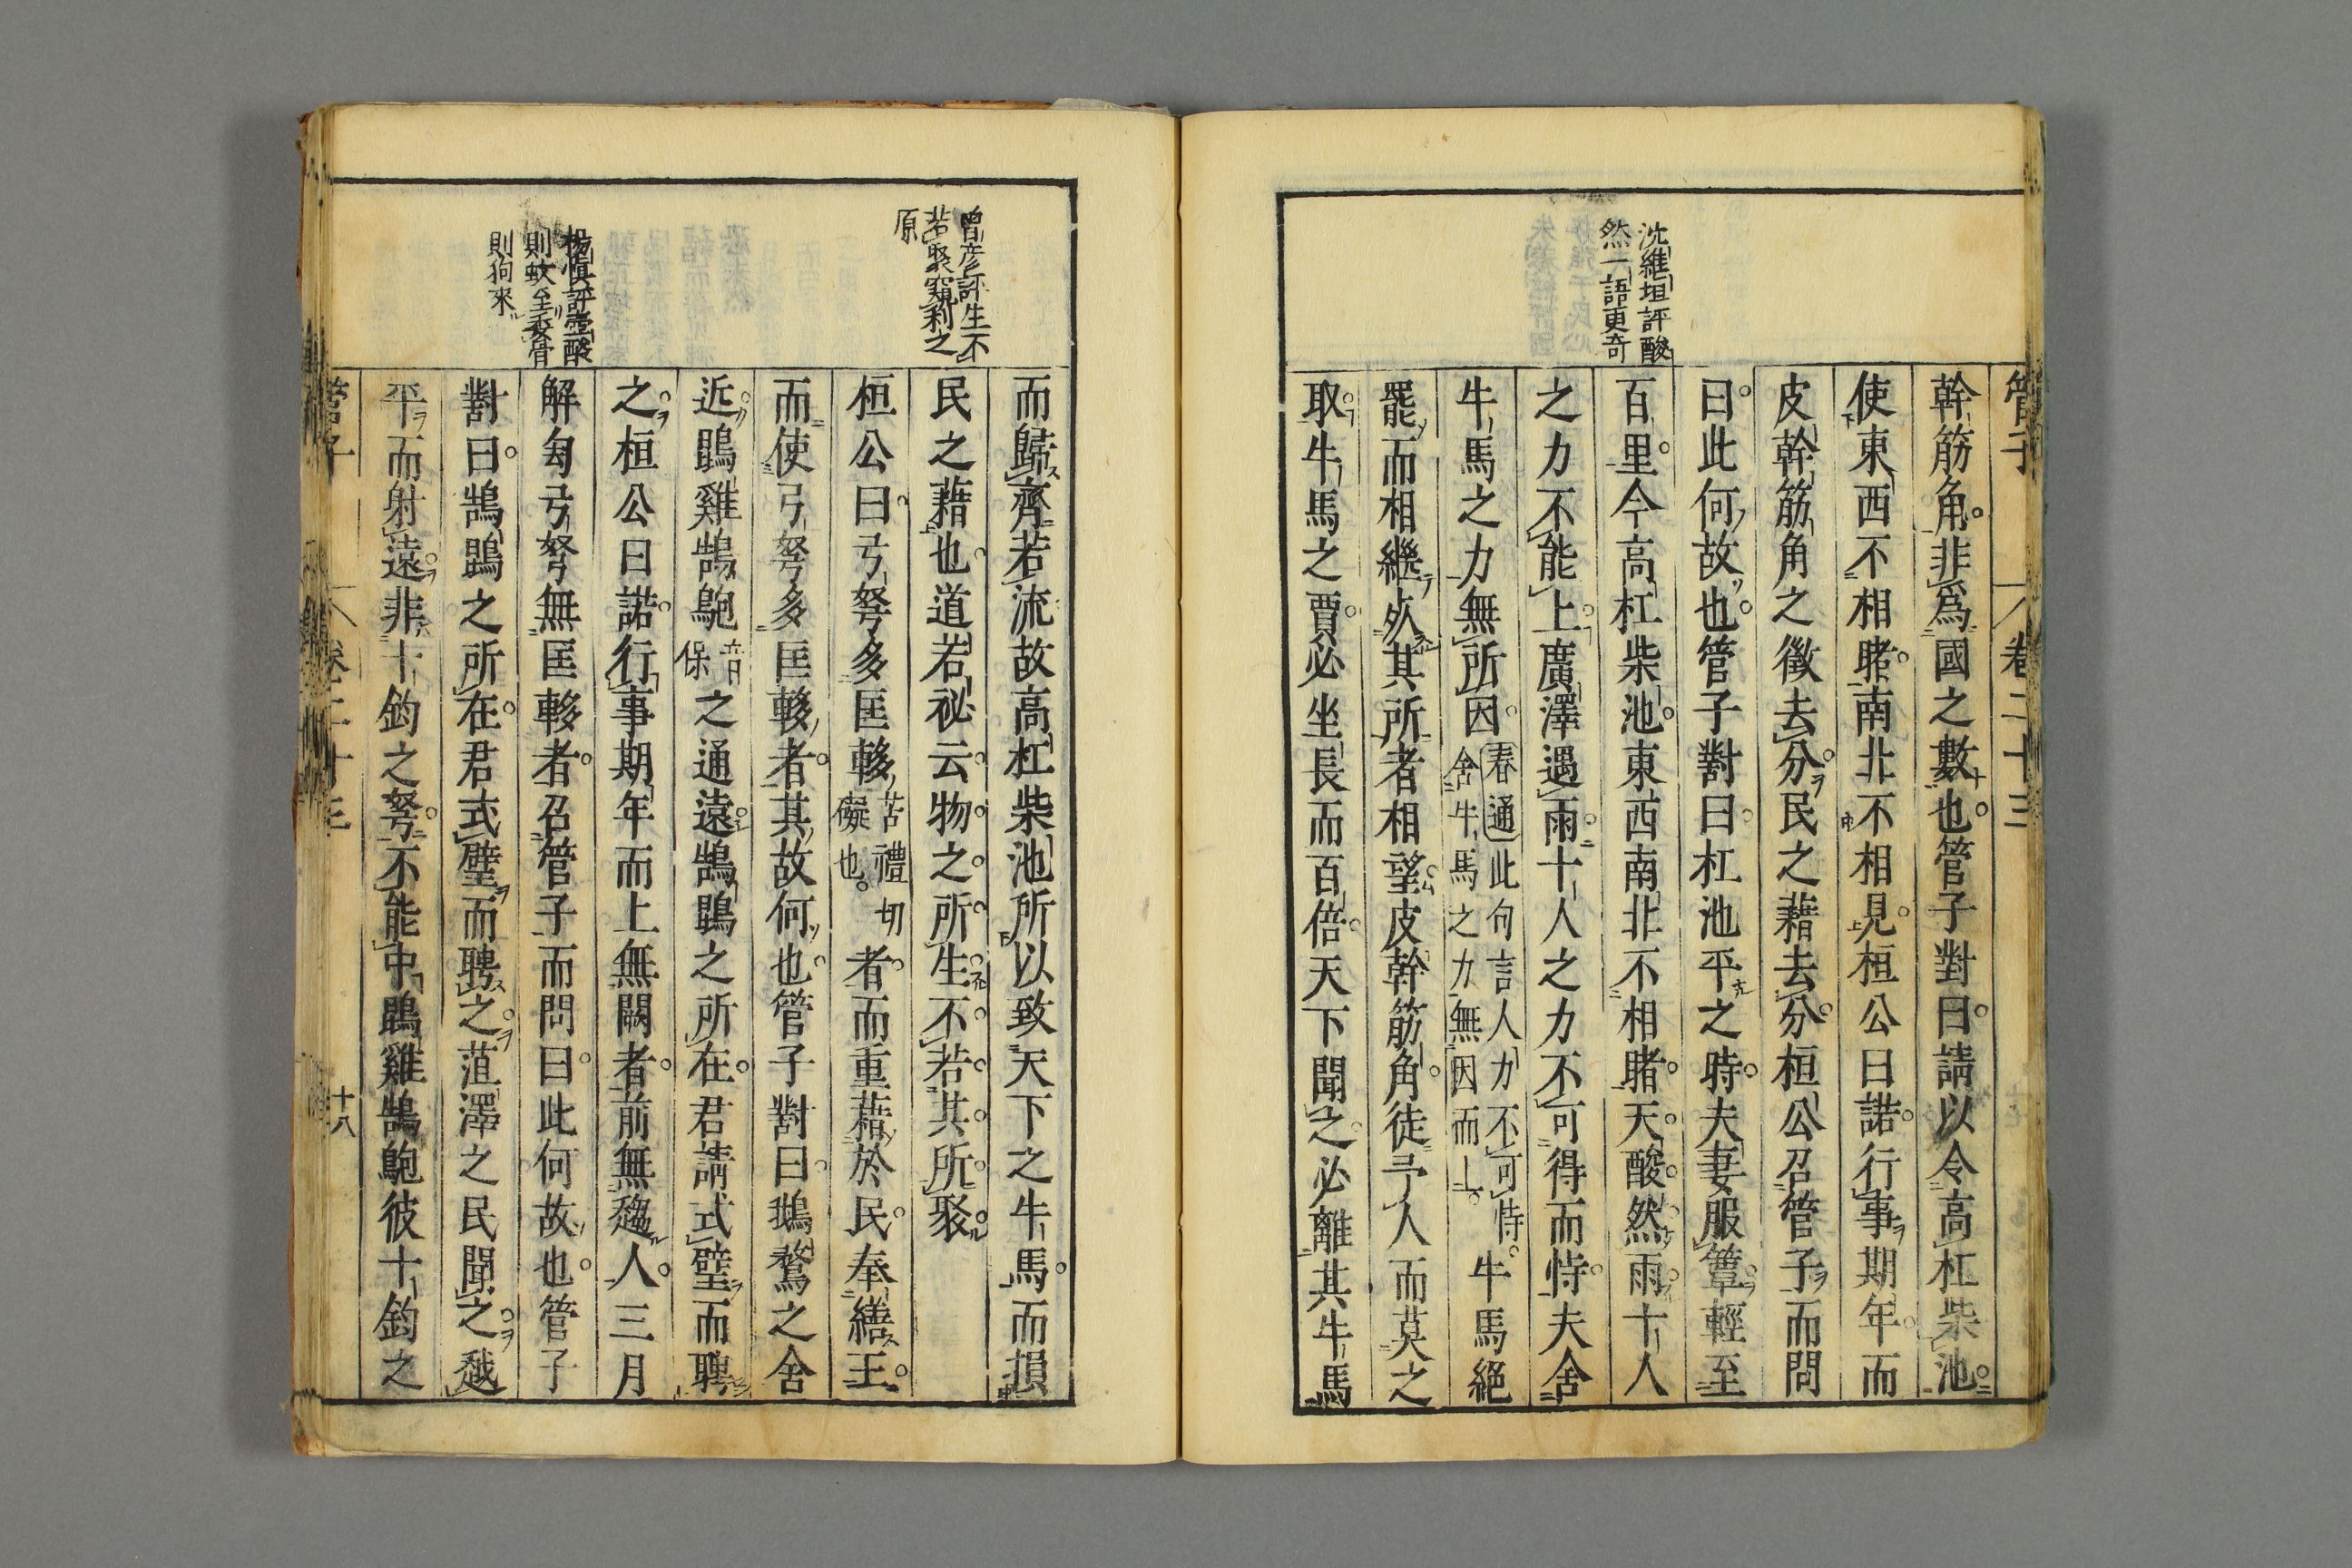 管子 卷二十三
沈維垣評酸
然一語更奇
幹筋角非爲國之數也管子對曰請以令高杠柴池
使東西不相睹南北不相見桓公曰諾行事期年而
皮幹筋角之徵去分民之藉去分桓公召管子而問
曰此何故也管子對曰杠池平之時夫妻服簟輕至
百里今高杠柴池東西南北不相睹天酸然雨十人
之力不能上廣澤遇雨十人之力不可得而恃夫舍
牛馬之力無所因春通此句言人力不可恃舍牛馬之力無因而上牛馬絕
罷而相繼死其所者相望皮幹筋角徒予人而莫之
取牛馬之賈必坐長而百倍天下聞之必離其牛馬
曾彦評生不
若聚窺利之
原
楊慎評壷酸
則蚊至委骨
則狗來
而歸齊若流故高杠柴池所以致天下之牛馬而損
民之藉也道若祕云物之所生不若其所聚
桓公曰弓弩多匡𨌥苦禮切礙也者而重藉於民奉繕王
而使弓弩多匡𨌥者其故何也管子對曰鵝鶩之舍
近鵾雞鵠鴇音保之通遠鵠鵾之所在君請式璧而聘
之桓公曰諾行事期年而上無闕者前無趨人三月
解匈弓弩無匡𨌥者召管子而問曰此何故也管子
對曰鵠鵾之所在君式璧而聘之菹澤之民聞之越
平而射遠非十鈞之弩不能中鵾雞鵠鴇彼十鈞之
管子 卷二十三 十八